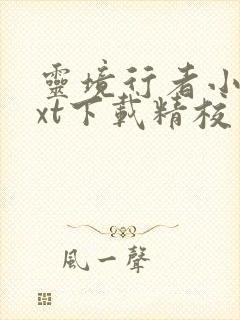 靈境行者小
xt下載精校
風一聲